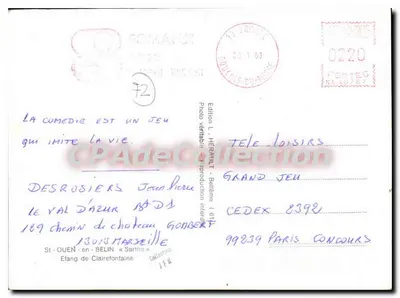 0220
POSTES
72
LA COMEDIE EST UN JEU
qui imite LA VIE
DESROSIERS Jean Pierre
LE VAL D'AZUR
169 chemin de chateau GOMBERT
13013 MARSEILLE
St - OUEN - en - BELIN « Sarthe »
Etang de Clairefontaine
Edition L. HERAULT - Bellême
Photo véritable reproduction interdite
TELE LOISIRS
GRAND JEU
CEDEX 8392
99839 PARIS CONCOURS
CPADeCollection